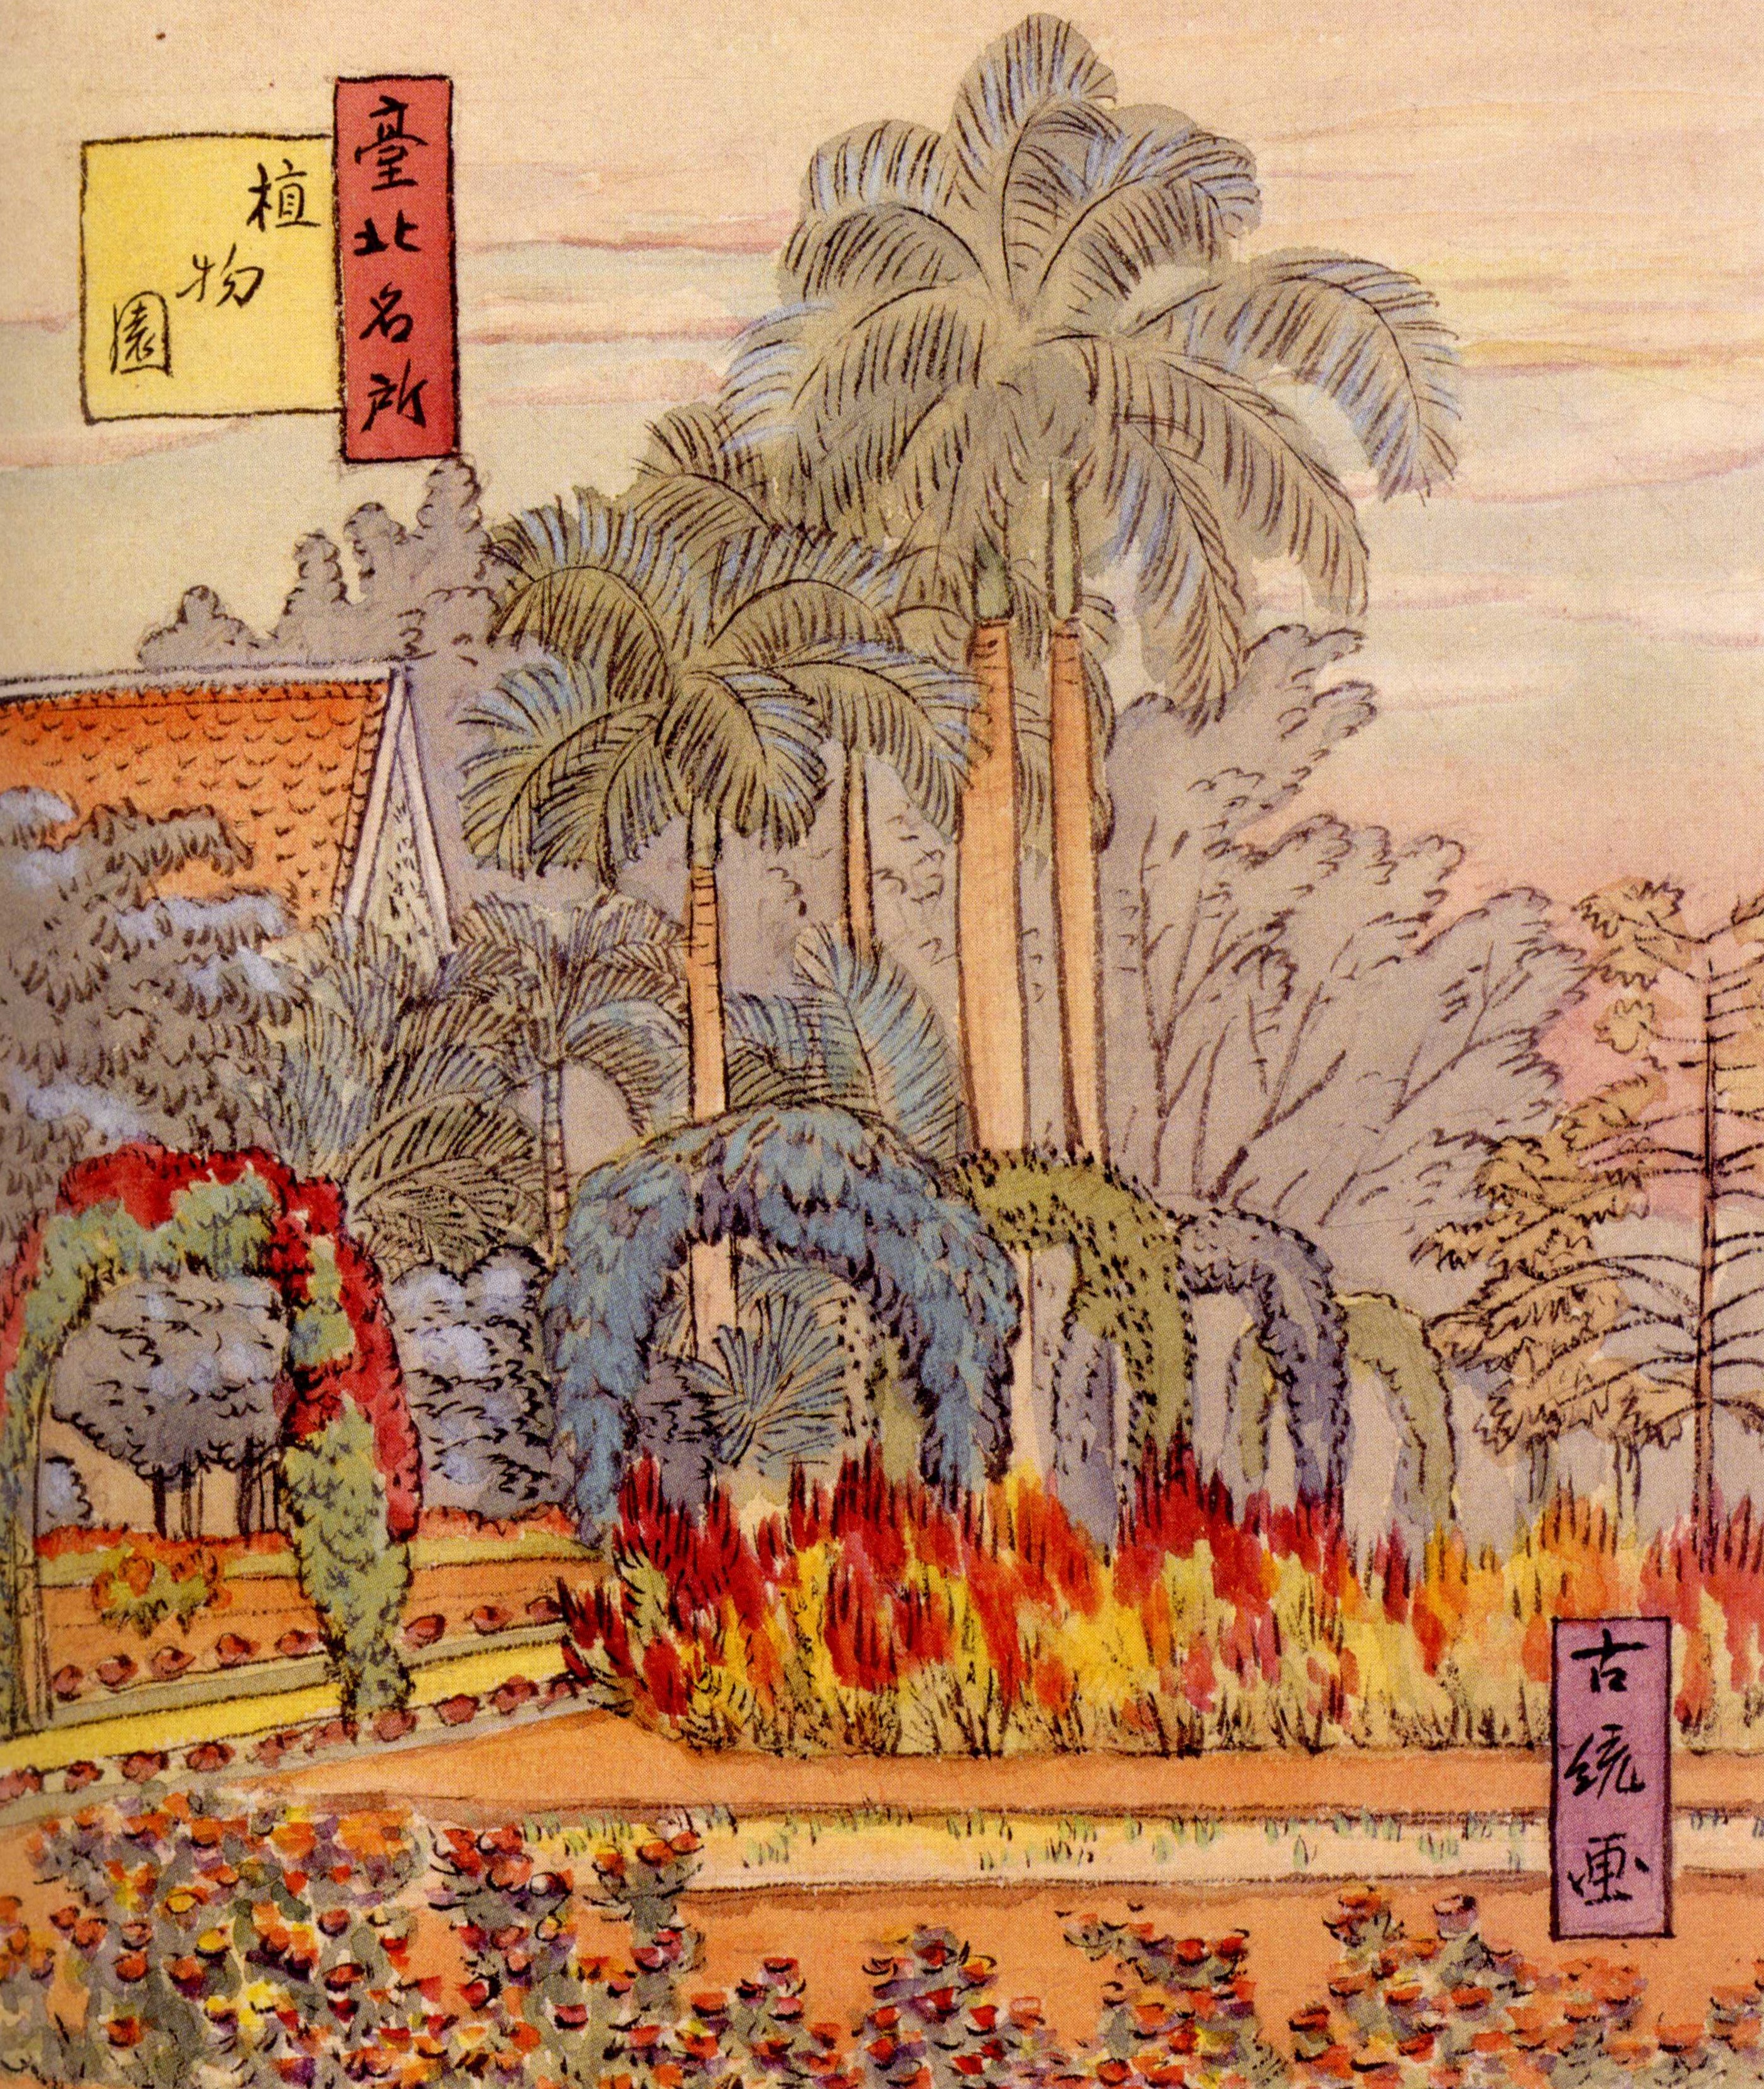 臺北名所
植物園
古統画